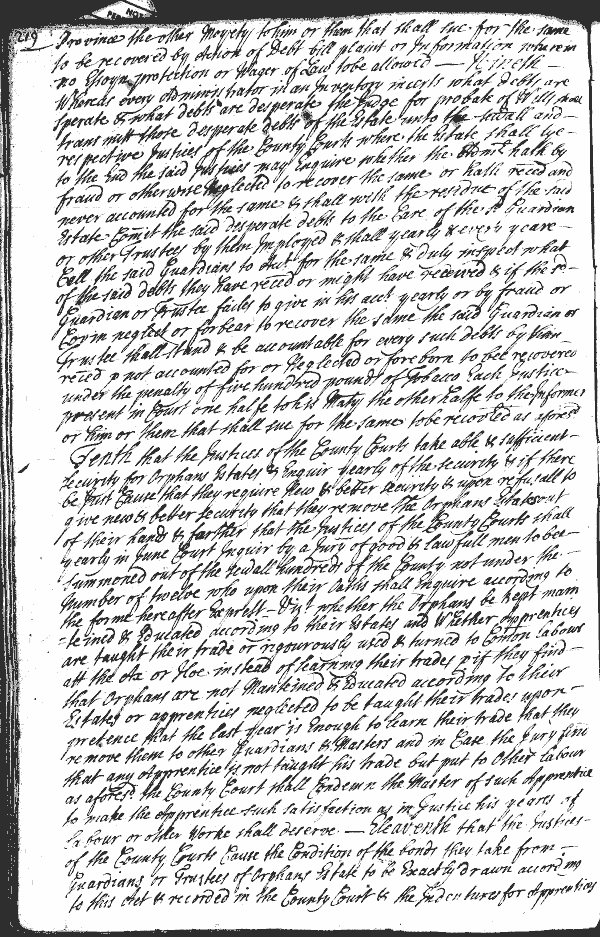 219
Province the other Moyety to him or them that shall sue for the same
to be recovered by Action of Debt bill plaint or Information wherein
no Essoyn protection or Wager of Law to be allowed —
Whereas every Administrator in an Inventory incerts what debts are
sperate & what debts are desperate the Judge for probate of Wills shall
transmitt those desperate debts of the Estate unto the sevall and —
respective Justices of the County Courts where the Estate shall lye —
to the End the said Justices may Enquire whether the Admr hath by
fraud or otherwise Neglected to recover the same or hath recd and
never accounted for the same & shall with the residue of the said
Estate Comit the said desperate debts to the Care of the sd Guardian
or other Trustees by them Imployed & shall yearly & every yeare —
Call the said Guardians to Acct for the same & duly inspect what
of the said debts they have reced or might have received & if the sd —
Guardian or Trustee failes to give in his acct yearly or by fraud or
Covin neglect or forbear to recover the same the said Guardian or
Trustee shall stand & be accountable for every such debts by him
reced & not accounted for or Neglected or foreborn to bee recovered
under the penalty of five hundred pounds of Tobacco Each Justice —
present in Court one halfe to his Maty the other halfe to the Informer
or him or them that shall sue for the same to be recovered as aforesd
Tenth that the Justices of the County Courts take able & sufficient —
security for Orphans Estates & Enquir yearly of the security & if there
be Just Cause that they require New & better security & upon refusall to
give new & better security that they remove the Orphans Estates out
of their hands & farther that the Justices of the County Courts shall
yearly in June Court Inquir by a Jury of good & lawfull men to bee —
summoned out of the sevall hundreds of the County not under the —
Number of twelve who upon their Oaths shall Inquire according to
the forme hereafter Exprest — Vizt whether the Orphans be kept main
-teined & Educated according to their Estates and Whether apprentices
are taught their trade or rigourously used & turned to Comon labour
att the Ax or Hoe instead of learning their trades & if they find —
that Orphans are not Manteined & Educated according to their
Estates or apprentices neglected to be taught their trades upon —
pretence that the last year is Enough to learn their trade that they
remove them to other Guardians & Masters and in Case the Jury find
that any Apprentice is not taught his trade but put to Other labour
as aforesd the County Court shall Condemn the Master of such Apprentice
to make the Apprentice such satisfaction as in Justice his years of
labour or other Worke shall deserve — Eleaventh that the Justices —
of the County Courts Cause the Condition of the bonds they take from —
Guardians or Trustees of Orphans Estate to be Exactly drawn according
to this Act & recorded in the County Court & the Indentures for Apprentices